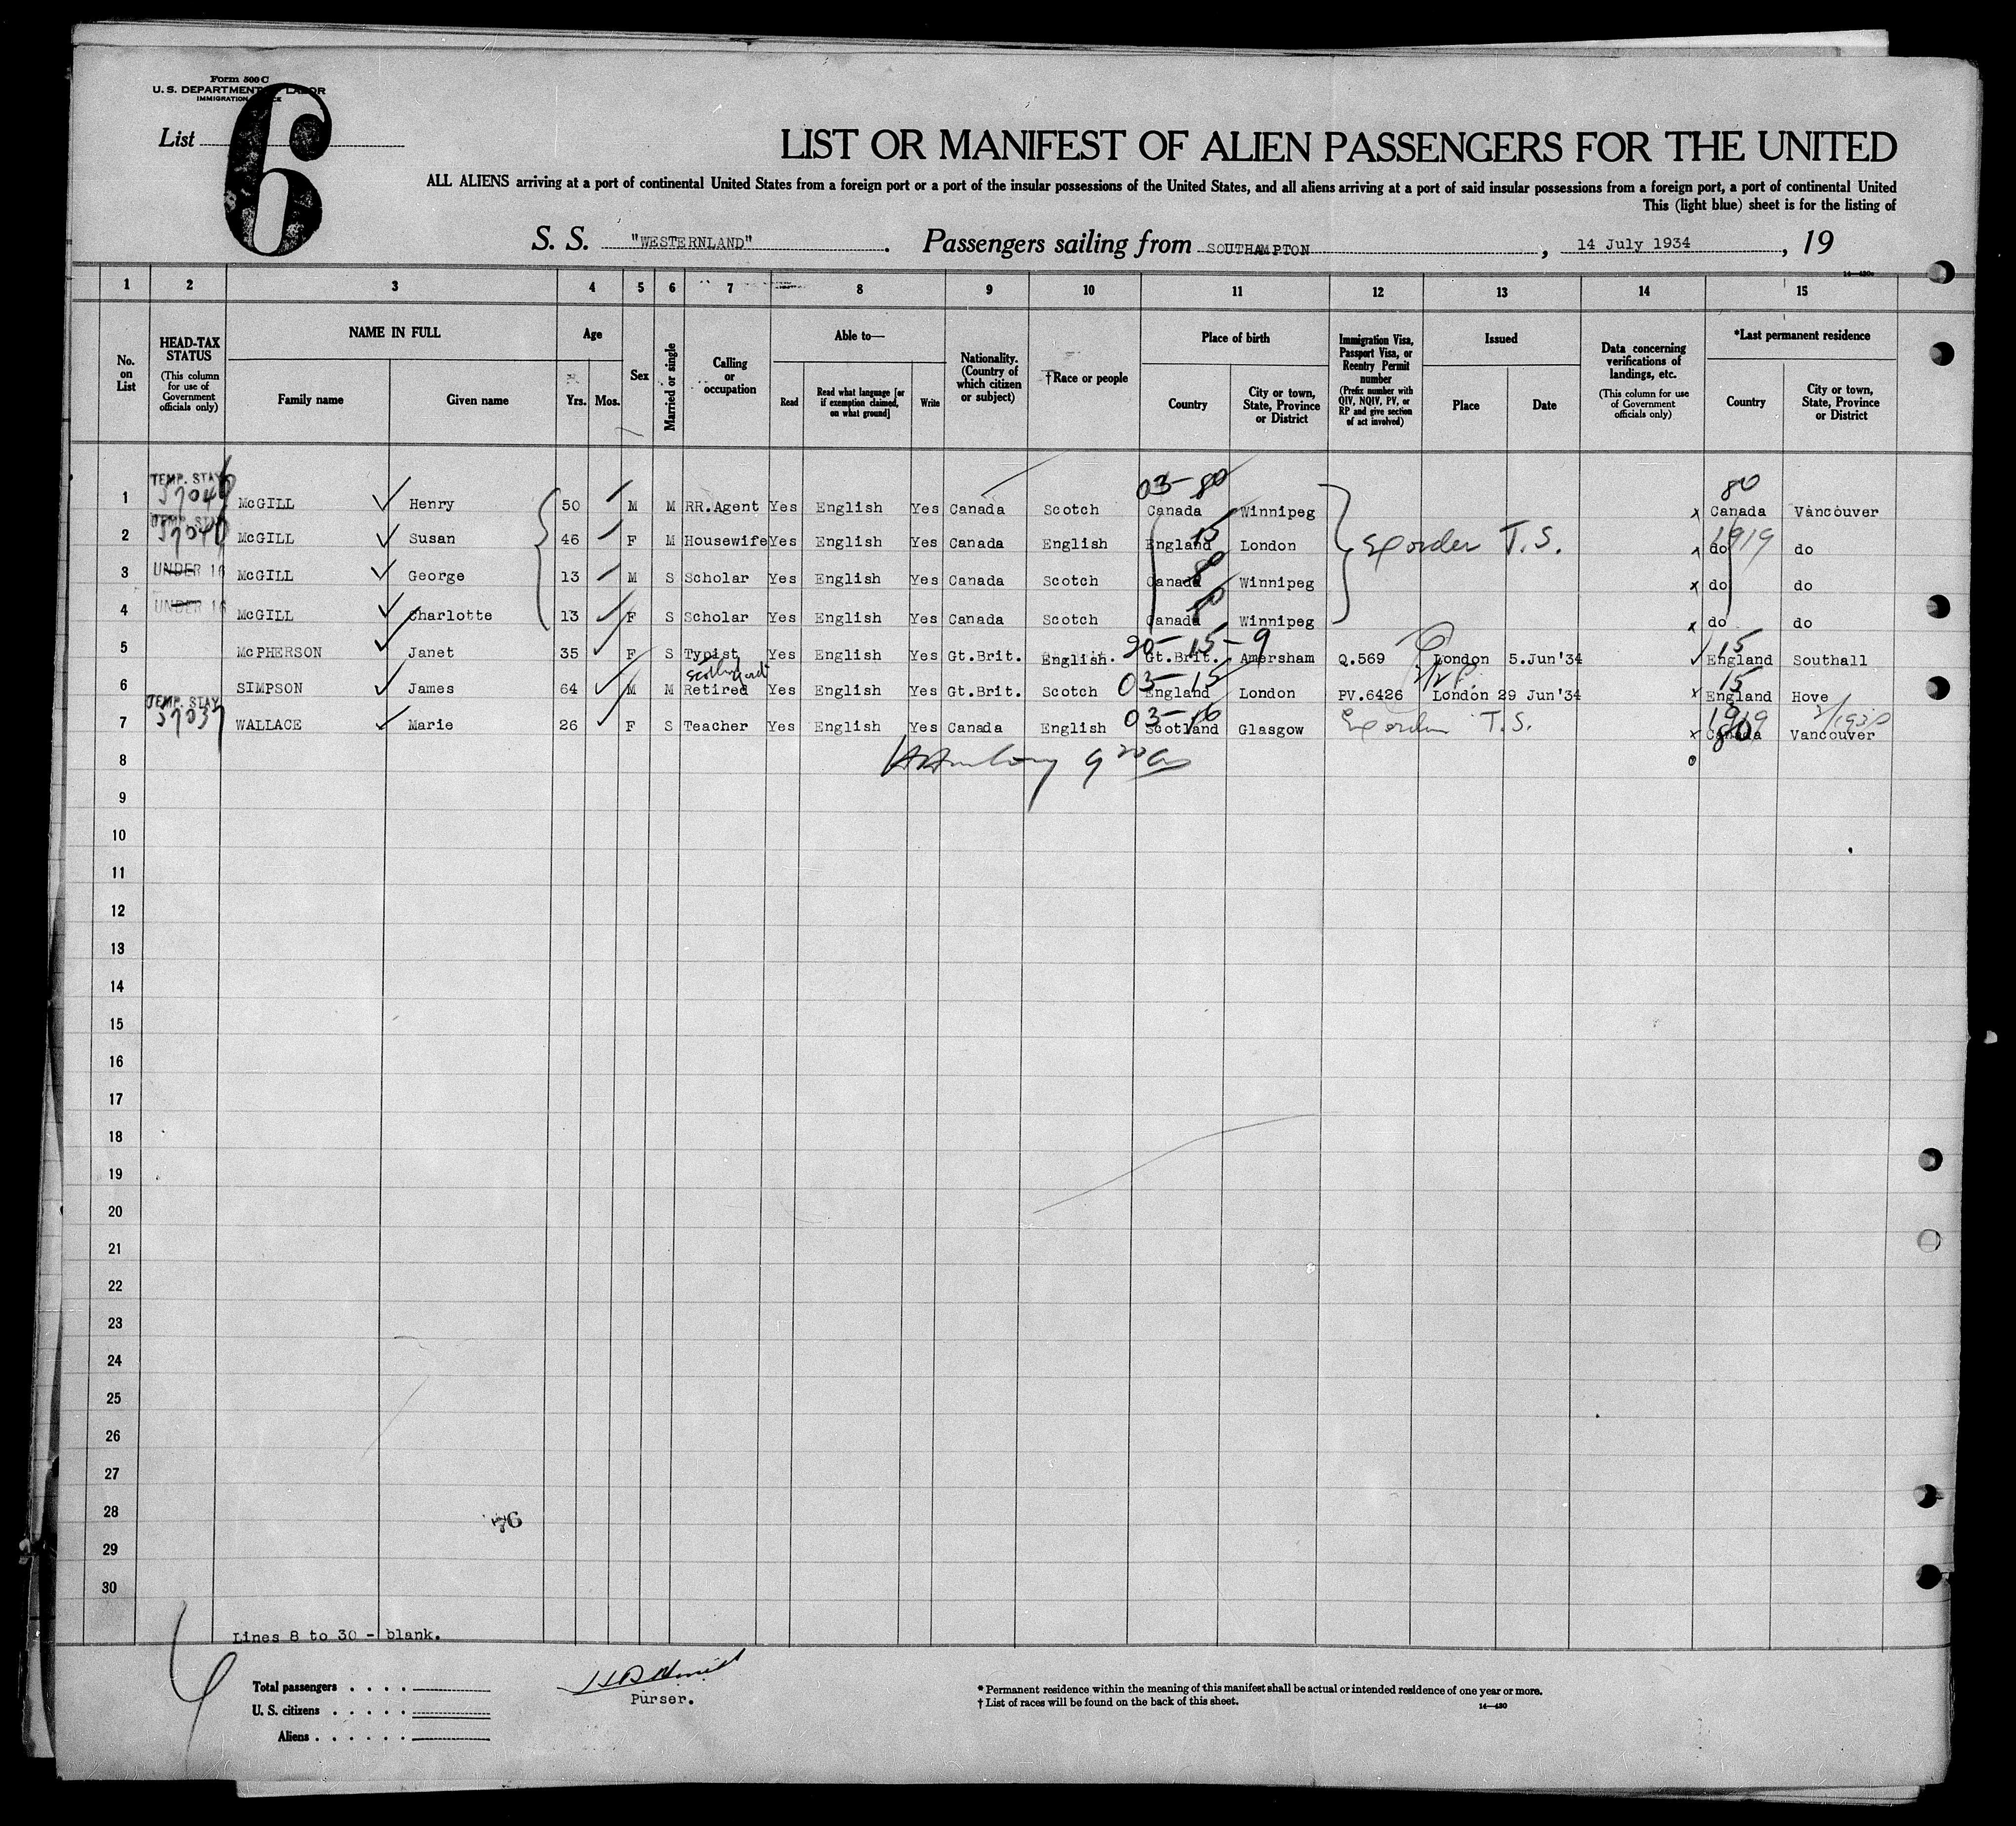 Form 500 C
U. S. DEPARTMENT LABOR
IMMIGRATION
List 6
LIST OR MANIFEST OF ALIEN PASSENGERS FOR THE UNITED
ALL ALIENS arriving at a port of continental United States from a foreign port or a port of the insular possessions of the United States, and all aliens arriving at a port of said insular possessions from a foreign port, a port of continental United
This (light blue) sheet is for the listing of
S. S. "WESTERNLAND". Passengers sailing from SOUTHAMPTON, 14 July 1934, 19
14—430
1 2 3 4 5 6 7 8 9 10 11 12 13 14 15
No. on List
HEAD-TAX STATUS (This column for use of Government officials only)
NAME IN FULL
Family name Given name
Age
Yrs. Mos.
Sex
Married or single
Calling or occupation
Able to—
Read Read what language [or if exemption claimed, on what ground] Write
Nationality. (Country of which citizen or subject)
†Race or people
Place of birth
Country City or town, State, Province or District
Immigration Visa, Passport Visa, or Reentry Permit number (Prefix number with QIV, NQIV, PV, or RP and give section of act involved)
Issued
Place Date
Data concerning verifications of landings, etc. (This column for use of Government officials only)
*Last permanent residence
Country City or town, State, Province or District
TEMP. STAY 03-80 80
1 McGILL Henry 50 M M RR.Agent Yes English Yes Canada Scotch Canada Winnipeg x Canada Vancouver
TEMP. STAY 15
2 McGILL Susan 46 F M Housewife Yes English Yes Canada English England London Ex order T.S. do 1919 do
UNDER 16 80
3 McGILL George 13 M S Scholar Yes English Yes Canada Scotch Canada Winnipeg x do do
UNDER 16 80
4 McGILL Charlotte 13 F S Scholar Yes English Yes Canada Scotch Canada Winnipeg x do do
20-15-9 15
5 McPHERSON Janet 35 F S Typist Yes English Yes Gt.Brit. English. Gt.Brit. Amersham Q.569 London 5.Jun'34 England Southall
03-15 15
6 SIMPSON James 64 M M Retired Yes English Yes Gt.Brit. Scotch England London PV.6426 London 29 Jun'34 x England Hove
TEMP. STAY 03-16
7 WALLACE Marie 26 F S Teacher Yes English Yes Canada English Scotland Glasgow Ex order T.S. x Canada 1919 80 Vancouver
8
9
10
11
12
13
14
15
16
17
18
19
20
21
22
23
24
25
26
27
28 76
29
30
Lines 8 to 30 - blank.
Total passengers . . . .
U. S. citizens . . . . .
Aliens . . . . . .
Purser.
* Permanent residence within the meaning of this manifest shall be actual or intended residence of one year or more.
† List of races will be found on the back of this sheet.
14—430